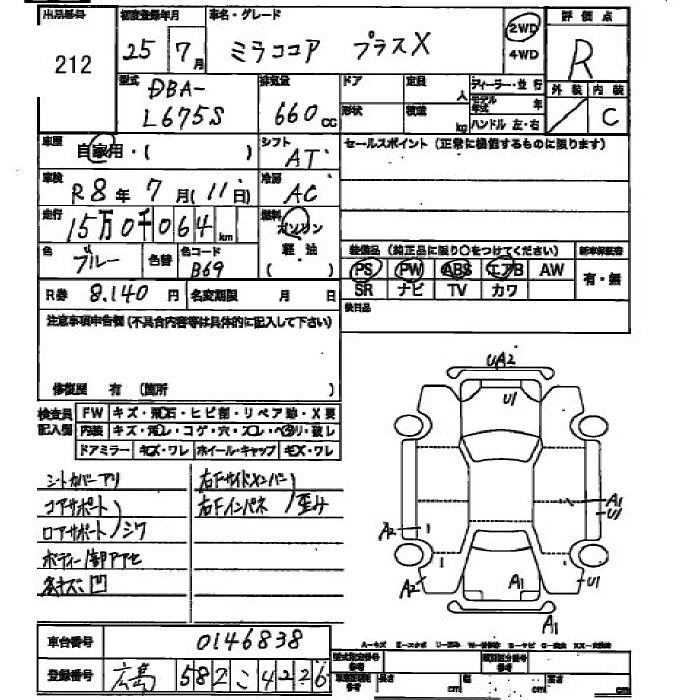 出品番号 初度登録年月 車名・グレード 評価点
212 25年 7月 ミラココア プラスX 2WD 4WD R
型式 DBA-L675S 排気量 660cc ドア 形状 定員 人 積載 kg ディーラー・並行 モデル年式 年 ハンドル 左・右 外装 内装 C
車歴 自家用・( ) シフト AT セールスポイント (正常に機能するものに限ります)
車検 R8年 7月 (11日) 冷房 AC
走行 15万0千064km 燃料 ガソリン 軽油 ( )
色 ブルー 色替 色コード B69 装備品 (純正品に限り〇をつけてください) 新車保証書
PS PW ABS エアB AW 有・無
SR ナビ TV カワ
R券 8,140円 名変期限 月 日
注意事項申告欄 (不具合内容等は具体的に記入して下さい) 後日品
修復歴 有 (箇所 )
検査員記入欄 FW キズ・飛石・ヒビ割・リペア跡・X要
内装 キズ・汚レ・コゲ・穴・スレ・ベタリ・破レ
ドアミラー キズ・ワレ ホイール・キャップ キズ・ワレ
シートカバーアリ 右Fサイドメンバー
コアサポート 右Fインパネ 歪み
ロアサポート シワ
ボディー1部アアセ
各キズ、凹
UA2
U1
A1
U1
A2
A2
A1
U1
A1
車台番号 0146838
登録番号 広島 582 こ 4226
型式指定番号 参考 類別区分番号 参考
長さ cm 幅 cm 高さ cm